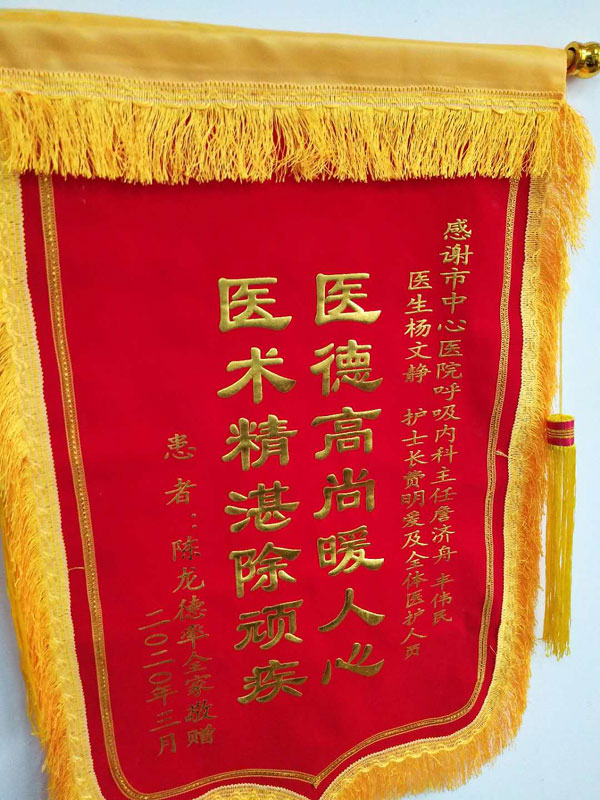 感谢市中心医院呼吸内科主任詹济舟 丰伟民
医生杨文静 护士长费明爱及全体医护人员
医德高尚暖人心
医术精湛除顽疾
患者：陈龙德率全家敬赠
二〇二〇年三月